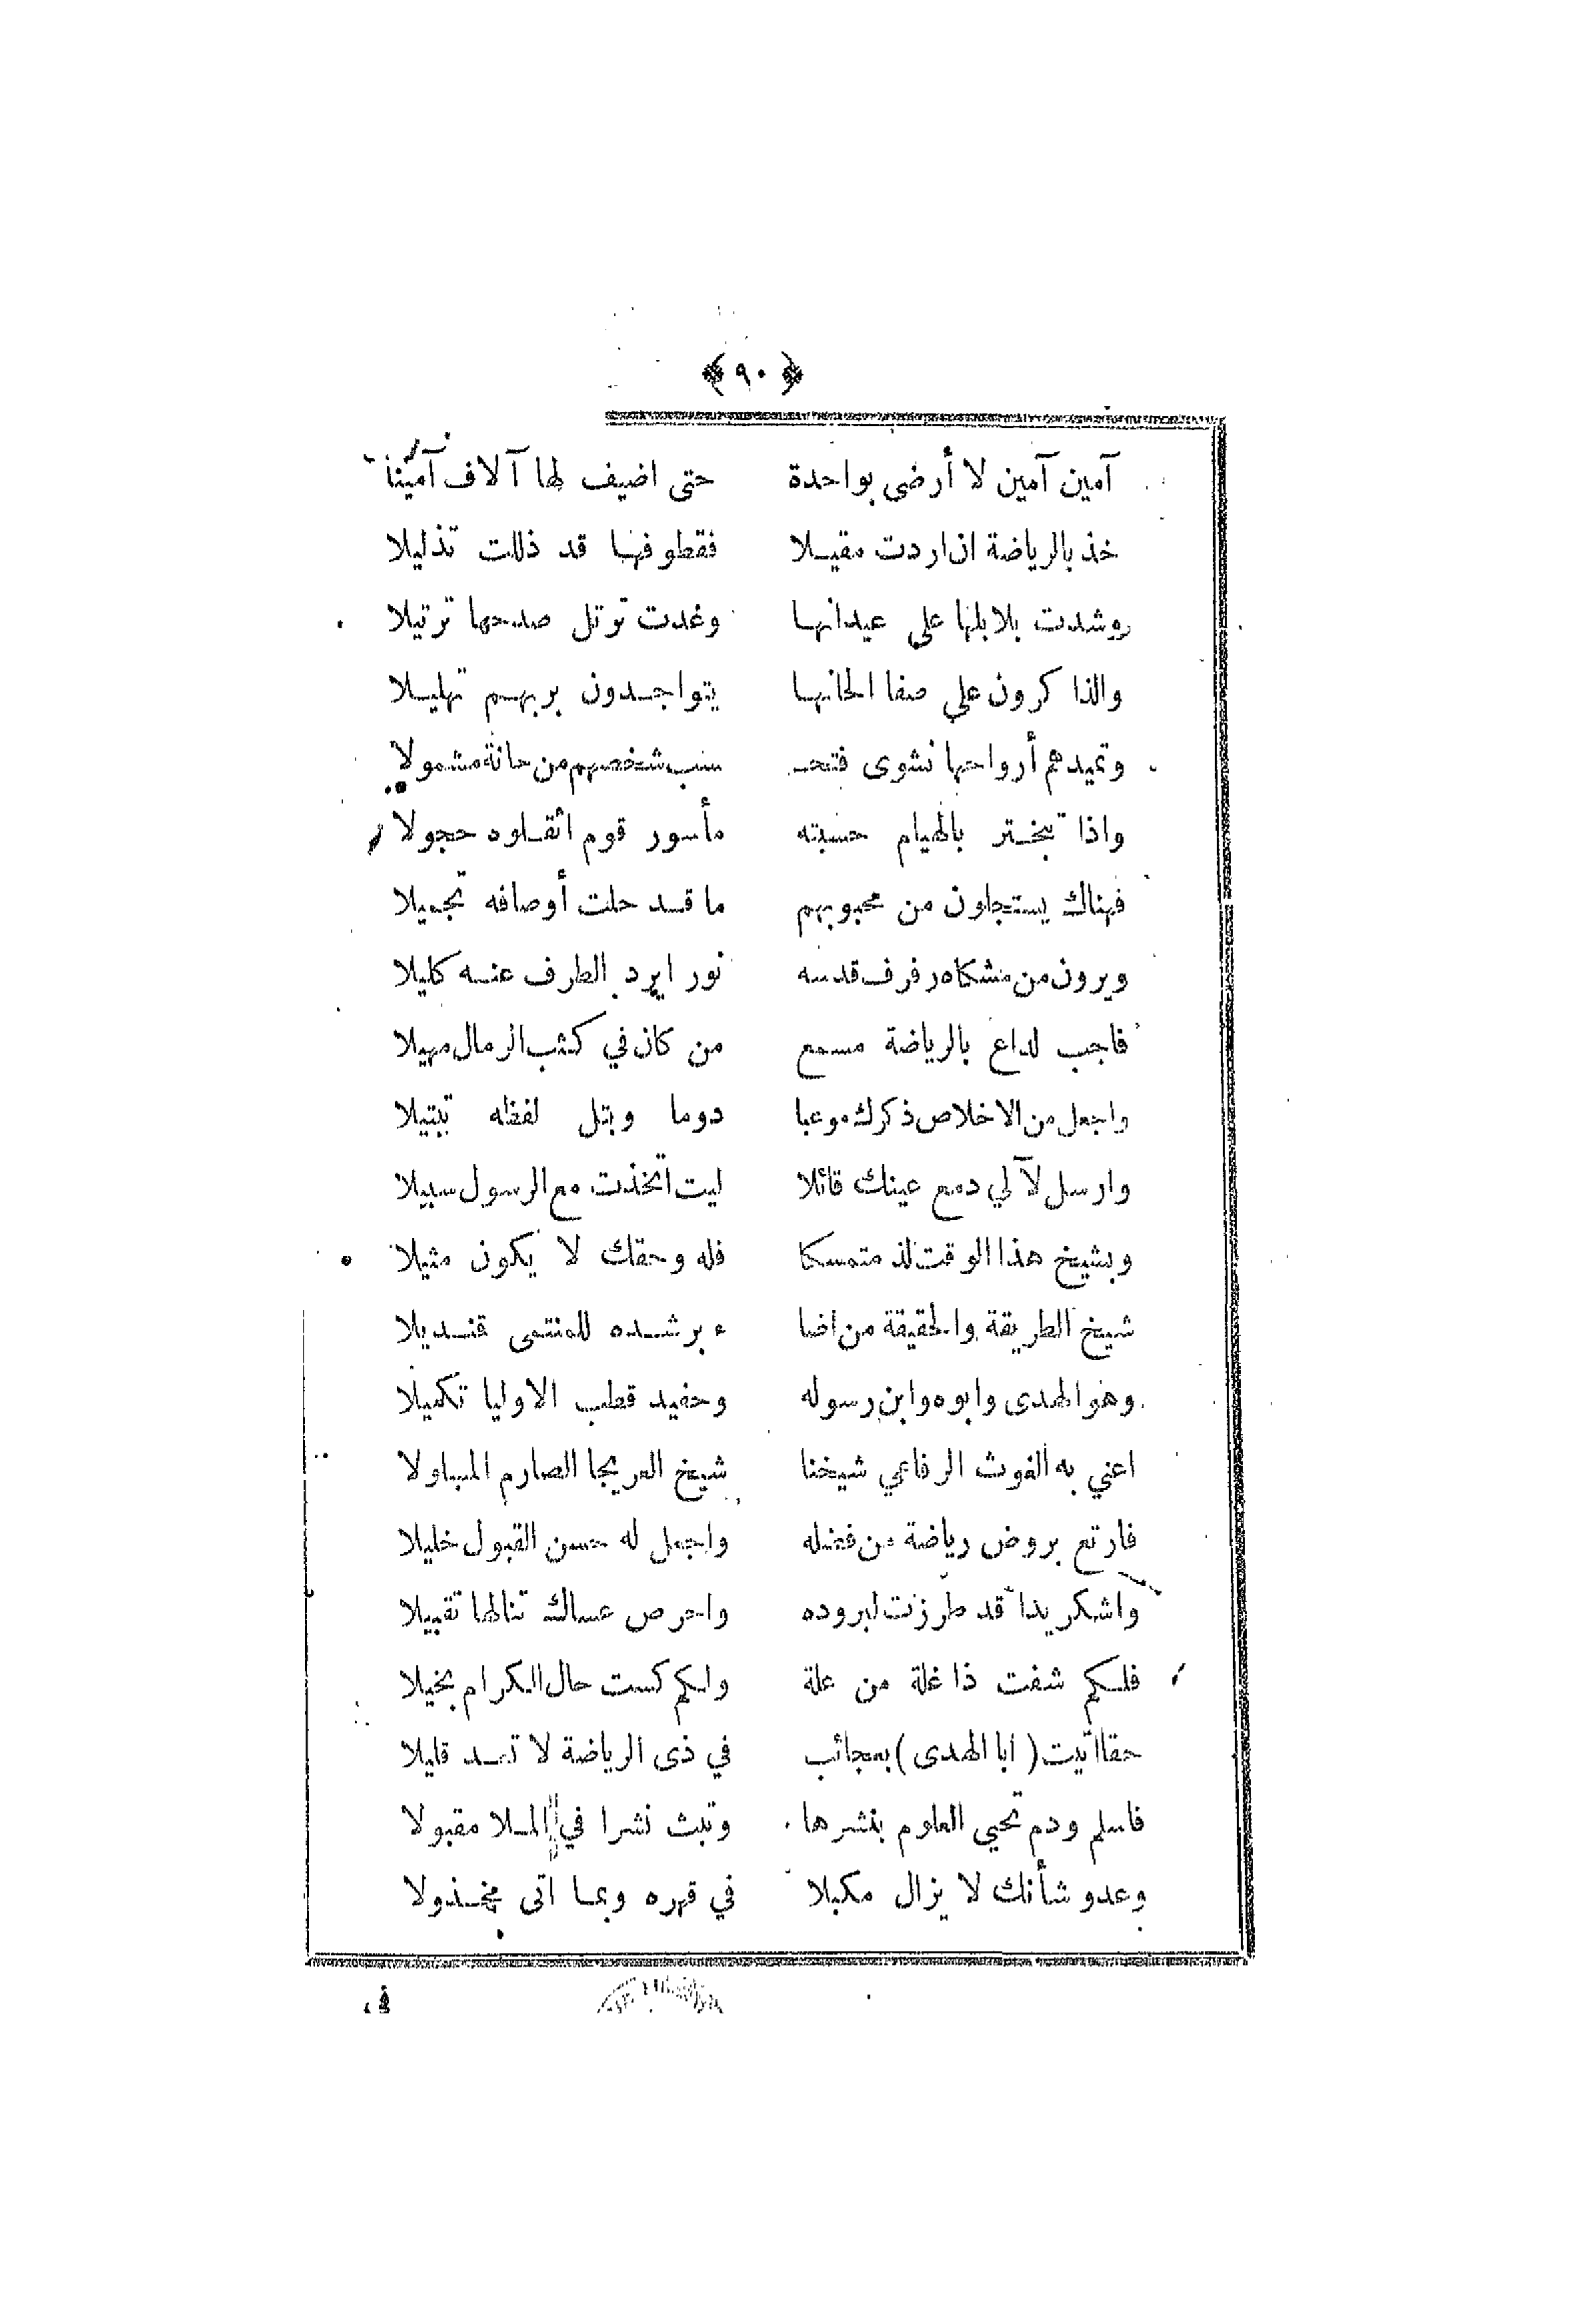 ﴿ ٩٠ ﴾
آمين آمين لا أرضى بواحدة حتى اضيف لها آلاف آمينا
خذ بالرياضة ان اردت مقيلا فقطوفها قد ذللت تذليلا
وشدت بلابلها على عيدانها وغدت ترتل صدحها ترتيلا
والذا كرون على صفا الحانها يتواجدون بربهم تهليلا
وتميدهم أرواحها نشوى فتحـ ـسب شخصهم من حانة مشمولا
واذا تبختر بالهيام حسبته مأسور قوم اثقلوه حجولا
فهناك يستجلون من محبوبهم ما قد حلت أوصافه تجميلا
ويرون من مشكاه رفرف قدسه نور ايرد الطرف عنه كليلا
فاجب لداع بالرياضة مسمع من كان في كثب الرمال مهيلا
واجعل من الاخلاص ذكرك موعبا دوما وبتل لفظه تبتيلا
وارسل لآلي دمع عينك قائلا ليت اتخذت مع الرسول سبيلا
وبشيخ هذا الوقت لذ متمسكا فله وحقك لا يكون مثيلا
شيخ الطريقة والحقيقة من اضا ء برشده للمنتمى قنديلا
وهو الهدى وابوه وابن رسوله وحفيد قطب الاوليا تكميلا
اعني به الغوث الرفاعي شيخنا شيخ العريجا الصارم المسلولا
فارتع بروض رياضة من فضله واجعل له حسن القبول خليلا
واشكر يدا قد طرزت لبروده واحرص عساك تنالها تقبيلا
فلكم شفت ذا غلة من علة ولكم كست حال الكرام بخيلا
حقا اتيت ( ابا الهدى ) بعجائب في ذى الرياضة لا تعد قليلا
فاسلم ودم تحيي العلوم بنشرها وتبث نشرا في الملا مقبولا
وعدو شأنك لا يزال مكبلا في قهره وبما اتى مخذولا